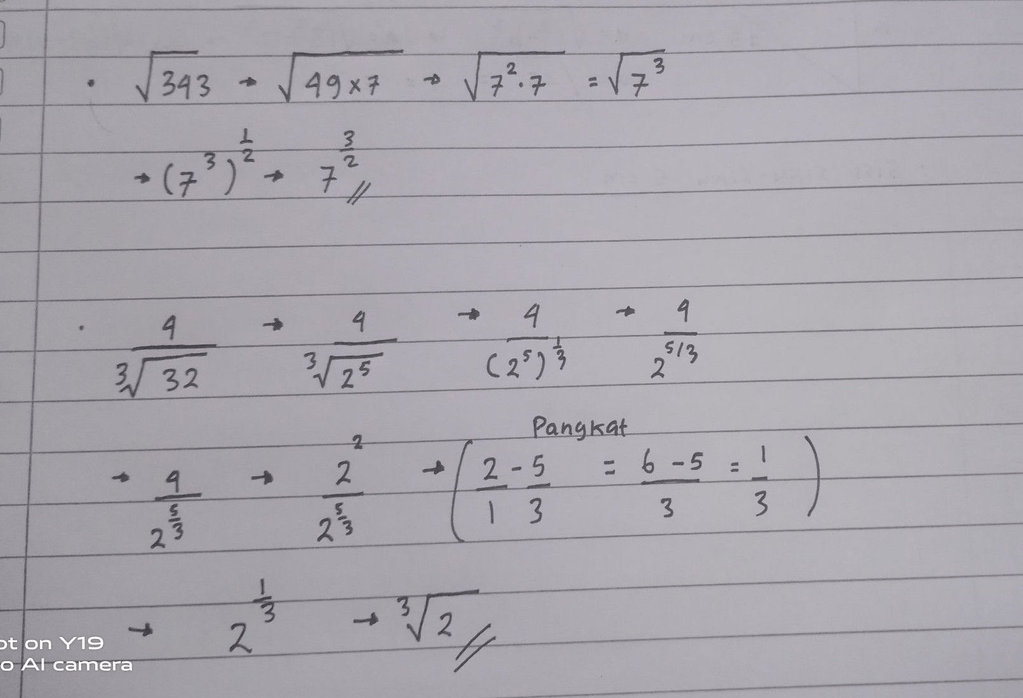 • √343 → √49×7 → √7²·7 = √7³
→ (7³)^½ → 7^(3/2) //
• 4/∛32 → 4/∛2⁵ → 4/(2⁵)^⅓ → 4/2^5/3
Pangkat
→ 4/2^(5/3) → 2²/2^(5/3) → (2/1 - 5/3 = 6-5/3 = 1/3)
→ 2^⅓ → ∛2 //
ot on Y19
o AI camera